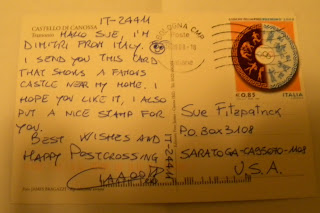 IT-24411
CASTELLO DI CANOSSA
HALLO SUE, I'M
DIMITRI FROM ITALY.
I SEND YOU THIS CARD
THAT SHOWS A FAMOUS
CASTLE NEAR MY HOME. I
HOPE YOU LIKE IT, I ALSO
PUT A NICE STAMP FOR
YOU.
BEST WISHES AND
HAPPY POSTCROSSING
IT-24411
BOLOGNA CMP
Poste
€ 0,85 ITALIA
Sue Fitzpatrick
P.O. BOX 3108
U.S.A.